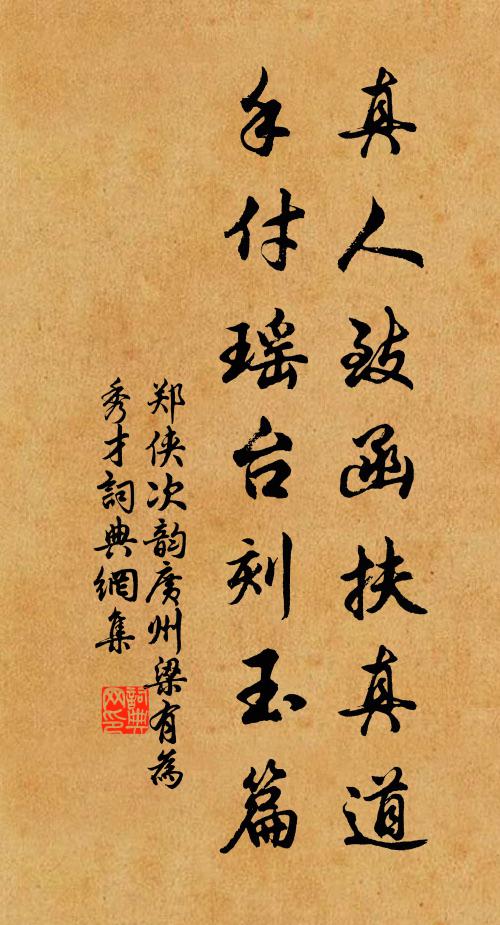 真人致函扶真道
手付瑶台刻玉篇
郑侠次韵广州梁有为
秀才詞典網集
詞典网印